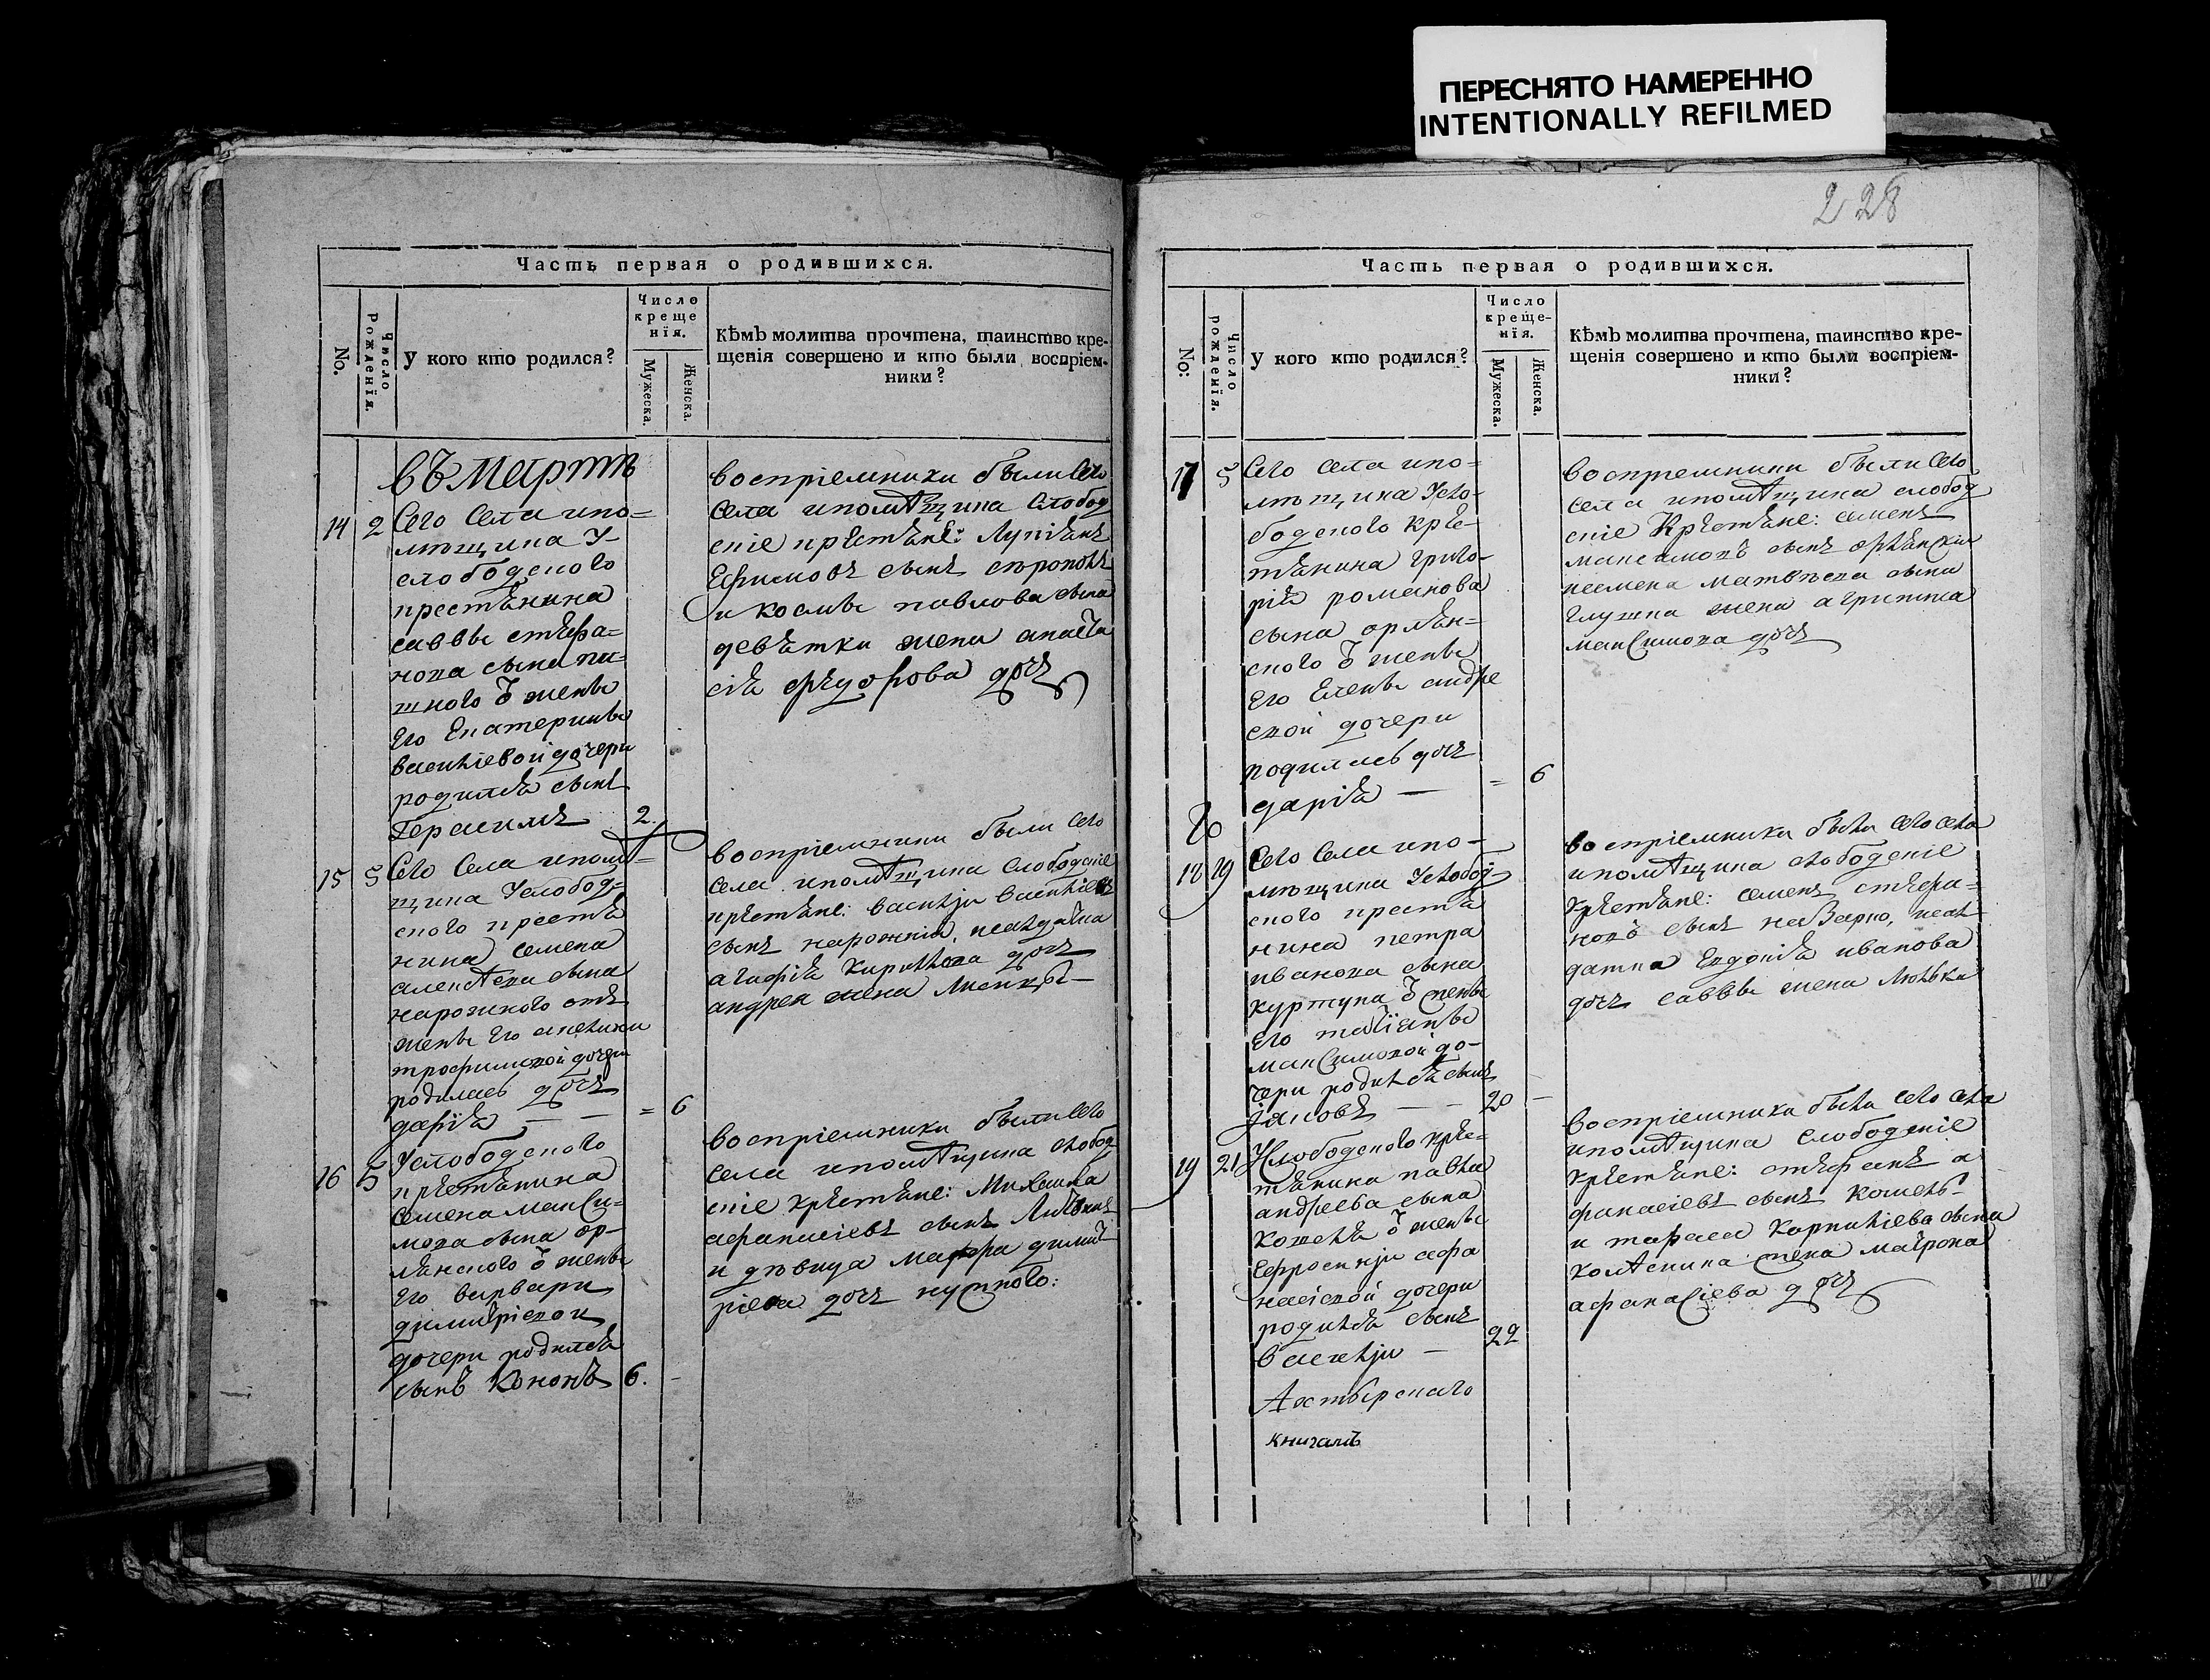 ПЕРЕСНЯТО НАМЕРЕННО
INTENTIONALLY REFILMED
228
Часть первая о родившихся.
No.
Число рожденїя.
У кого кто родился?
Число креще нїя.
Мужеска.
Женска.
Кѣмъ молитва прочтена, таинство кре-
щенїя совершено и кто были воспрїем-
ники?
въ Мартѣ
14 2 Сего Села ипо=
мѣщика У
слободского
крестянина
саввы стефа=
нова сына
шного ѿ жены
Его Екатерины
василіевой дочери
родился сынъ
Герасимъ 2.
воспріемники были Сего
села и помѣщика Слобод
скіе крестяне: Лупіянъ
Ефимовъ сынъ
и космы павлова сына
девятки жена анаста
сія феудорова дочь
15 5 Сего Села и помѣ=
щика Услобод=
ского крестя
нина семена
алексѣева сына
нарожного отъ
жены Его
трофимовой дочери
родилась дочь
дарія — — = 6
воспріемники были Сего
села и помѣщика Слободскіе
крестяне: василіи василіевъ
сынъ
агафія кирилова дочь
андрея жена
16 5 Услободского
крестянина
Семена Макси=
мова сына ор-
лянского ѿ жены
Его варвары
димитріевои
дочери родился
сынъ Кононъ 6. -
воспріемники были Сего
села и помѣщика слобод
скіе крестяне: Михаила
афанасіевъ сынъ
и дѣвица марфа димит
ріева дочь
Часть первая о родившихся.
No:
Число рожденїя.
У кого кто родился?
Число креще- нїя.
Мужеска.
Женска.
Кѣмъ молитва прочтена, таинство кре-
щенїя совершено и кто были воспрїем-
ники?
17 5 Сего села ипо=
мѣщика Усло-
бодского кре-
тянина григо-
рія романова
сына орлян=
ского ѿ жены
Его Елены андре
евой дочери
родилась дочь
дарія — = 6
воспріемники были Сего
села и помѣщика слобод
скіе Крестяне: семенъ
максимовъ сынъ орлянскіи
семена матвѣева сына
глушка жена агрипина
максимова дочь
18 19 Сего Села ипо-
мѣщика Услобод-
ского крестя
нина петра
иванова сына
куртупа ѿ жены
Его татіаны
максимовой до-
чери родился сынъ
іяковъ — — 20 —
воспріемники были сего села
и помѣщика слободскіе
крестяне: семенъ стефа=
новъ сынъ
Евдокія иванова
дочь саввы жена
19 21 Услободского кре=
тянина павла
андреева сына
кошеля ѿ жены
Ефросиніи афа
насіевой дочери
родился сынъ
василіи — 22
воспріемники были сего села
и помѣщика слободскіе
крестяне: стефанъ а
фанасіевъ сынъ кошель
и тараса корниліева сына
жена матрона
афанасіева дочь
книгамъ